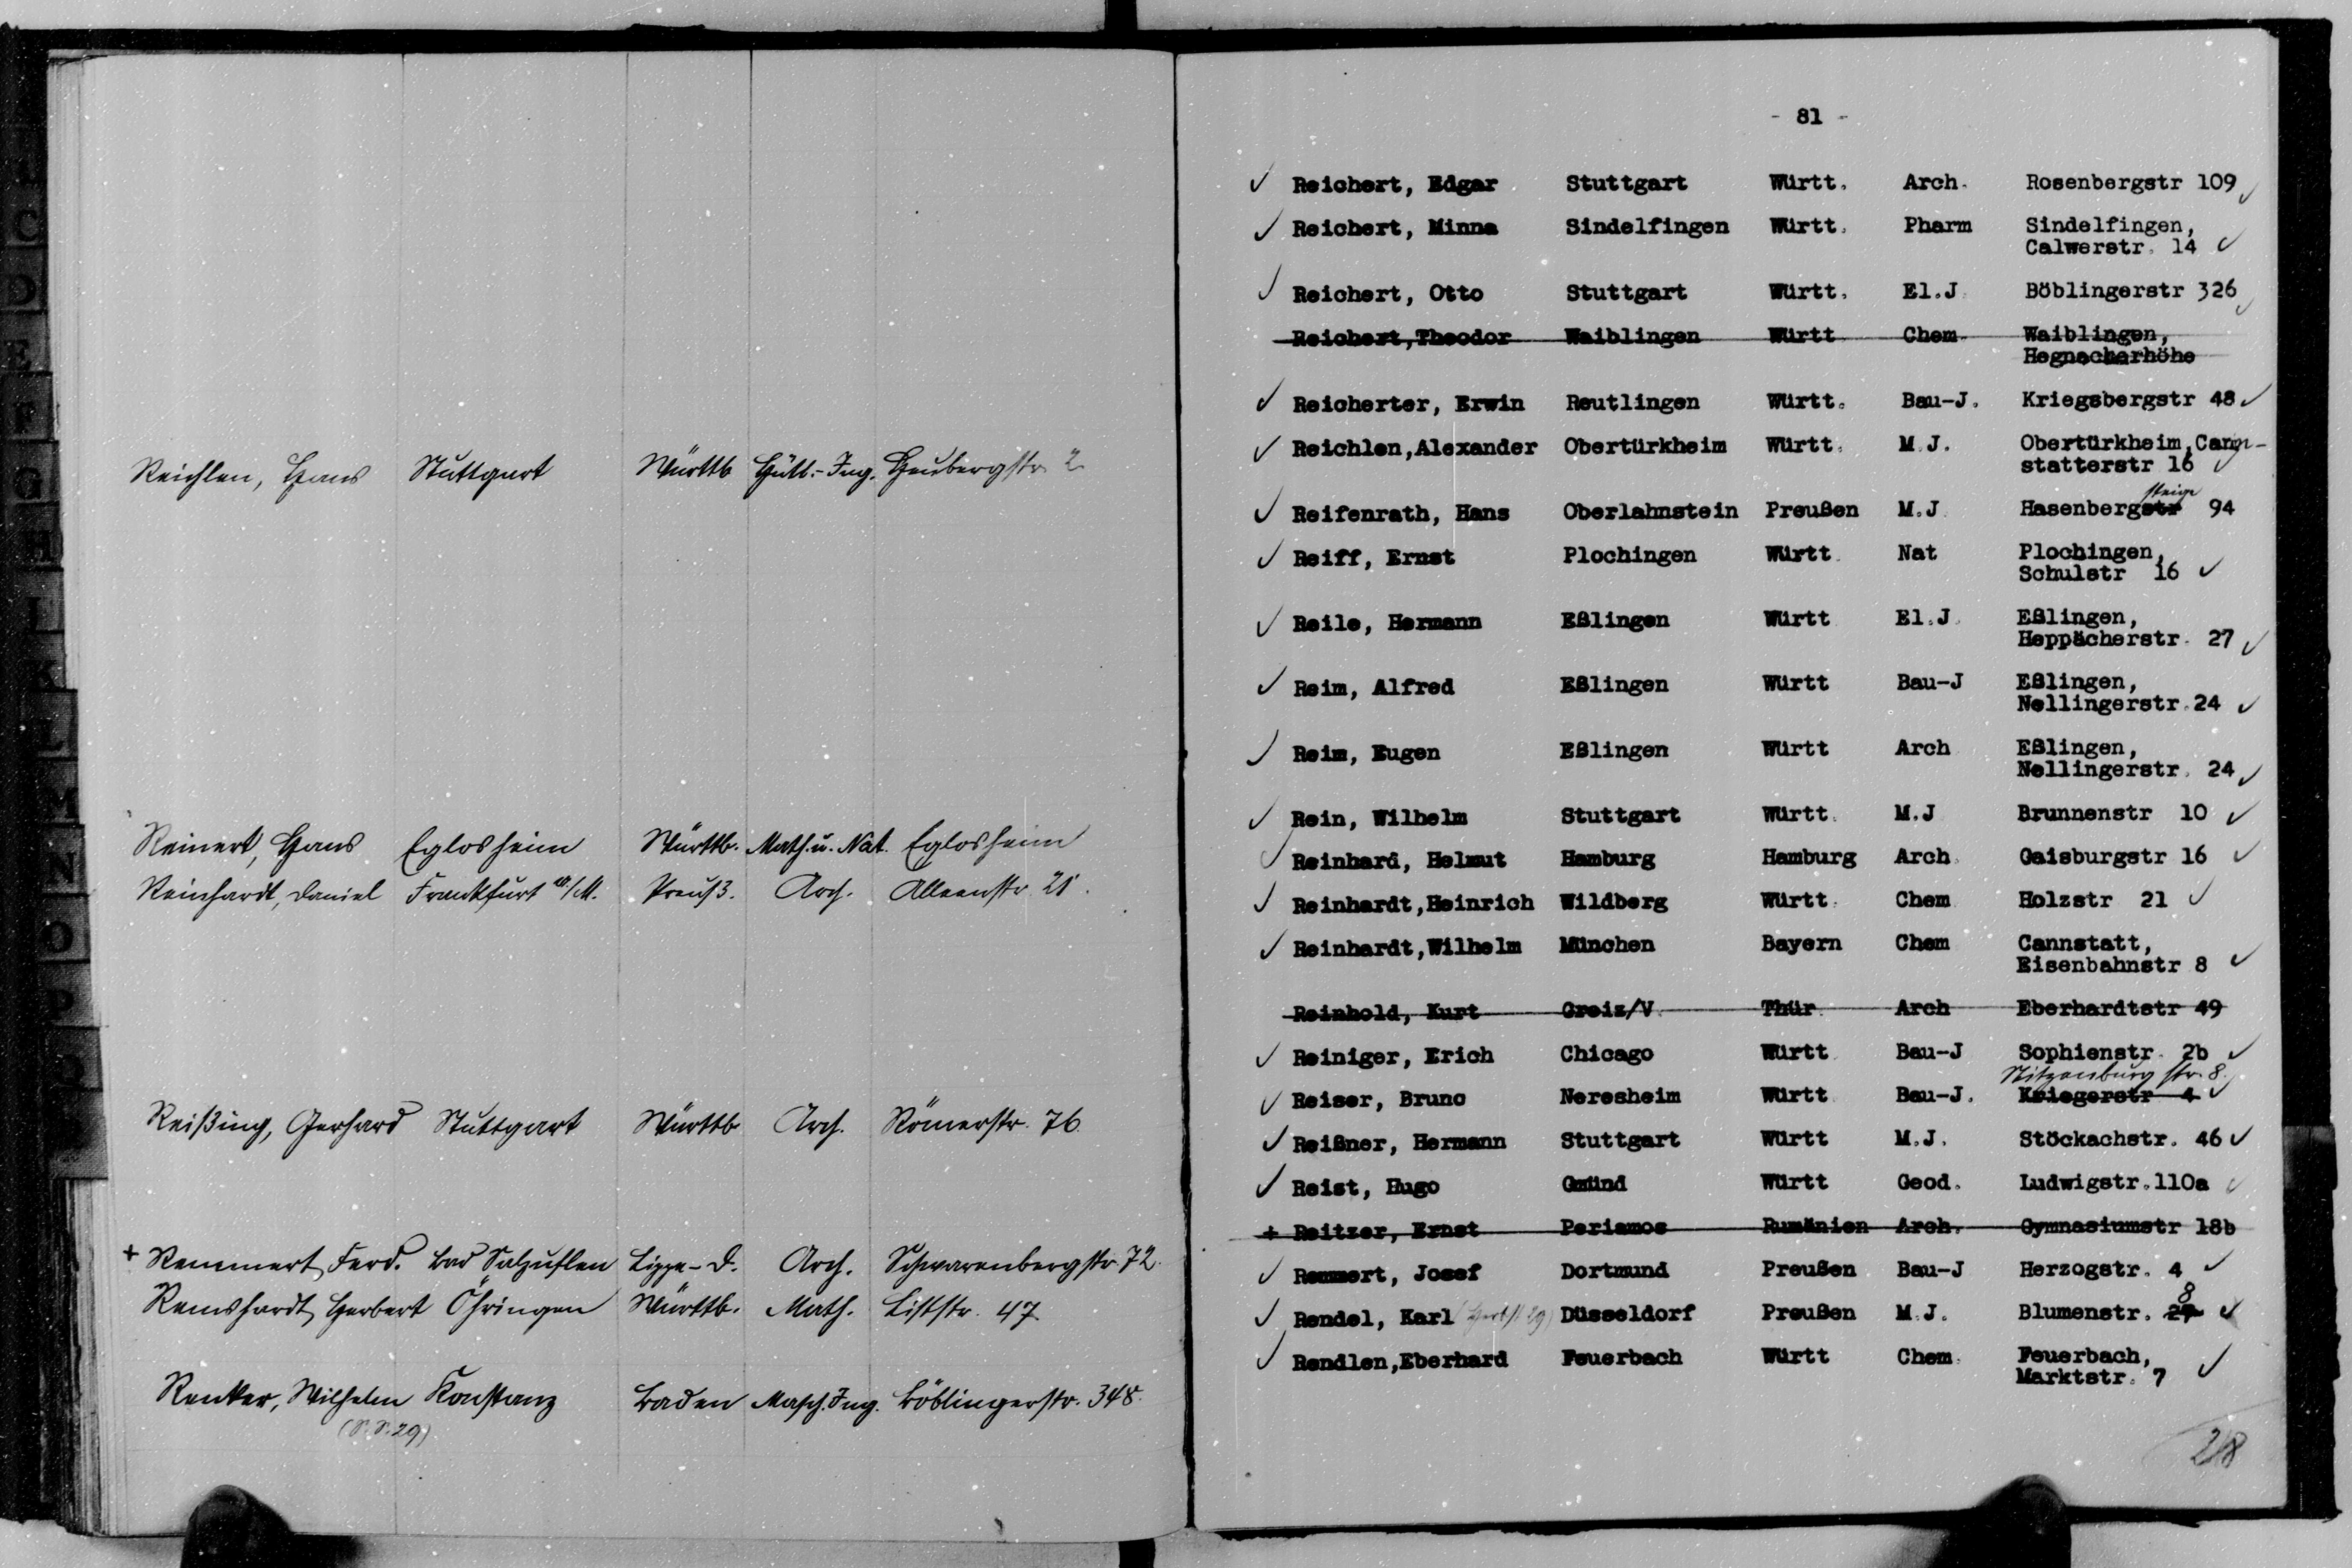 Reichlen, Hans Stuttgart Württb Hütt.-Ing. Heubergstr. 2
Reinert, Hans Eglosheim Württb. Math. u. Nat. Eglosheim
Reinhardt, Daniel Frankfurt a./M. Preuß. Arch. Alleenstr. 21.
Reißing, Gerhard Stuttgart Württb Arch. Römerstr. 76.
+ Remmert, Ferd. Bad Salzuflen Lippe-D. Arch. Schwarenbergstr. 72.
Remshardt, Herbert Öhringen Württb. Math. Liststr. 47
Renker, Wilhelm Konstanz Baden Masch. Ing. Böblingerstr. 348.
(S.S. 29)
- 81 -
Reichert, Edgar Stuttgart Württ. Arch. Rosenbergstr 109
Reichert, Minna Sindelfingen Württ. Pharm Sindelfingen,
Calwerstr. 14
Reichert, Otto Stuttgart Württ. El.J. Böblingerstr 326
Reichert,Theodor Waiblingen Württ Chem Waiblingen,
Hegnacherhöhe
Reicherter, Erwin Reutlingen Württ. Bau-J. Kriegsbergstr 48
Reichlen,Alexander Obertürkheim Württ. M.J. Obertürkheim,Cann-
statterstr 16
steige
Reifenrath, Hans Oberlahnstein Preußen M.J Hasenbergstr 94
Reiff, Ernst Plochingen Württ Nat Plochingen,
Schulstr 16
Reile, Hermann Eßlingen Württ El.J. Eßlingen,
Heppächerstr. 27
Reim, Alfred Eßlingen Württ Bau-J Eßlingen,
Nellingerstr.24
Reim, Eugen Eßlingen Württ Arch Eßlingen,
Nellingerstr. 24
Rein, Wilhelm Stuttgart Württ. M.J Brunnenstr 10
Reinhard, Helmut Hamburg Hamburg Arch. Gaisburgstr 16
Reinhardt,Heinrich Wildberg Württ. Chem Holzstr 21
Reinhardt,Wilhelm München Bayern Chem Cannstatt,
Eisenbahnstr 8
Reinhold, Kurt Greiz/V. Thür. Arch Eberhardtstr 49
Reiniger, Erich Chicago Württ Bau-J Sophienstr. 2b
Stitzenburgstr. 8.
Reiser, Bruno Neresheim Württ Bau-J. Kriegerstr 4
Reißner, Hermann Stuttgart Württ M.J. Stöckachstr. 46
Reist, Hugo Gmünd Württ Geod. Ludwigstr.110a
+ Reitzer, Ernst Periamos Rumänien Arch. Gymnasiumstr 18b
Remmert, Josef Dortmund Preußen Bau-J Herzogstr. 4
8
Rendel, Karl (Herbst 29) Düsseldorf Preußen M.J. Blumenstr. 27
Rendlen,Eberhard Feuerbach Württ Chem. Feuerbach,
Marktstr. 7